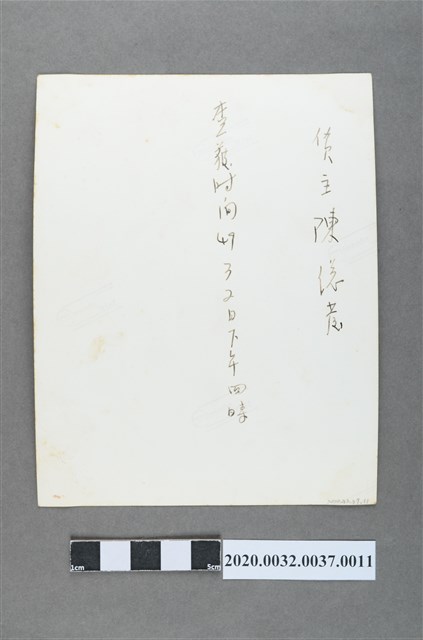 货主陳
查獲时间49 3 2日下午四時
1cm
5cm
2020.0032.0037.0011